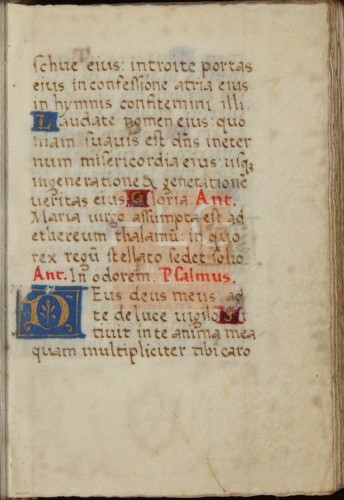 schue eius: introite portas
eius in confessione atria eius
in hymnis confitemini illi.
Laudate nomen eius: quo
niam suauis est dñs in eter
num misericordia eius: usq;
in generatione & generationē
ueritas eius Gloria. Ant.
Maria uirgo assumpta est ad
ethereum thalamū: in quo
rex regū stellato sedet solio.
Ant. In odorem. Psalmus.
DEus deus meus ad
te de luce uigilo S
tiuit in te anima mea
quam multipliciter tibi caro